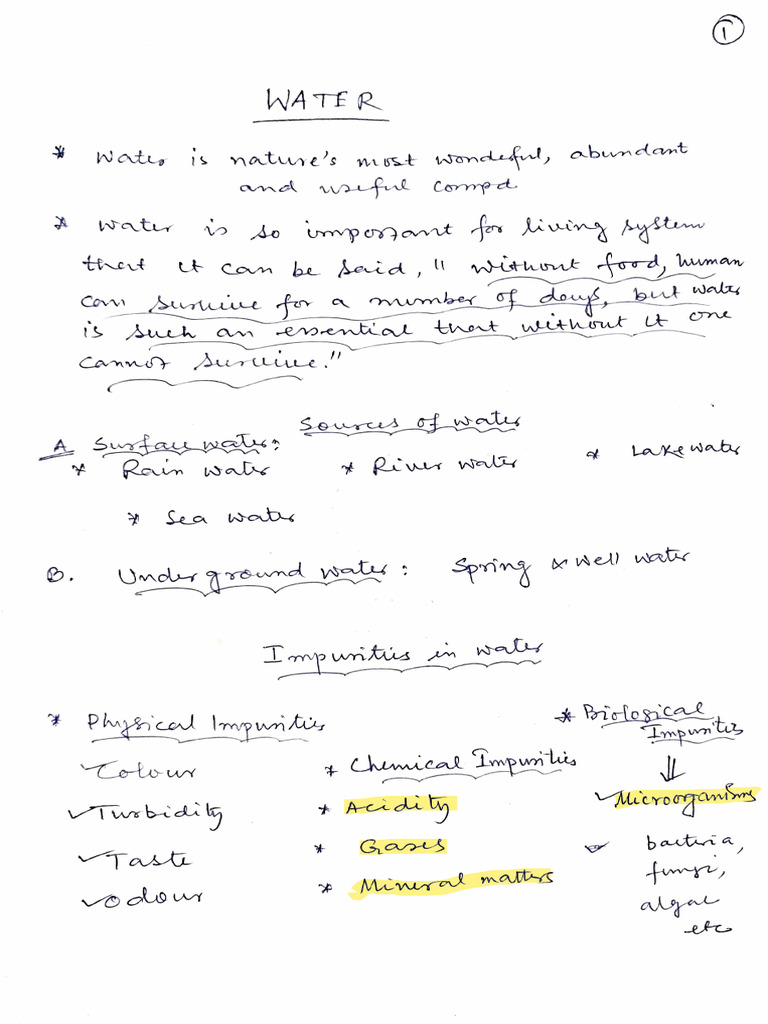 1
WATER
* Water is nature's most wonderful, abundant
and useful compd
* Water is so important for living system
that it can be said, " without food, human
can survive for a number of days, but water
is such an essential that without it one
cannot survive."
Sources of water
A Surface water:
* Rain water * River water * Lake water
* Sea water
B. Underground water: Spring & well water
Impurities in water
* Physical Impurities
✓ Colour
✓ Turbidity
✓ Taste
✓ Odour
* Chemical Impurities
* Acidity
* Gases
* Mineral matters
* Biological
Impurities
⇓
✓ Microorganisms
✓ bacteria,
fungi,
algae
etc